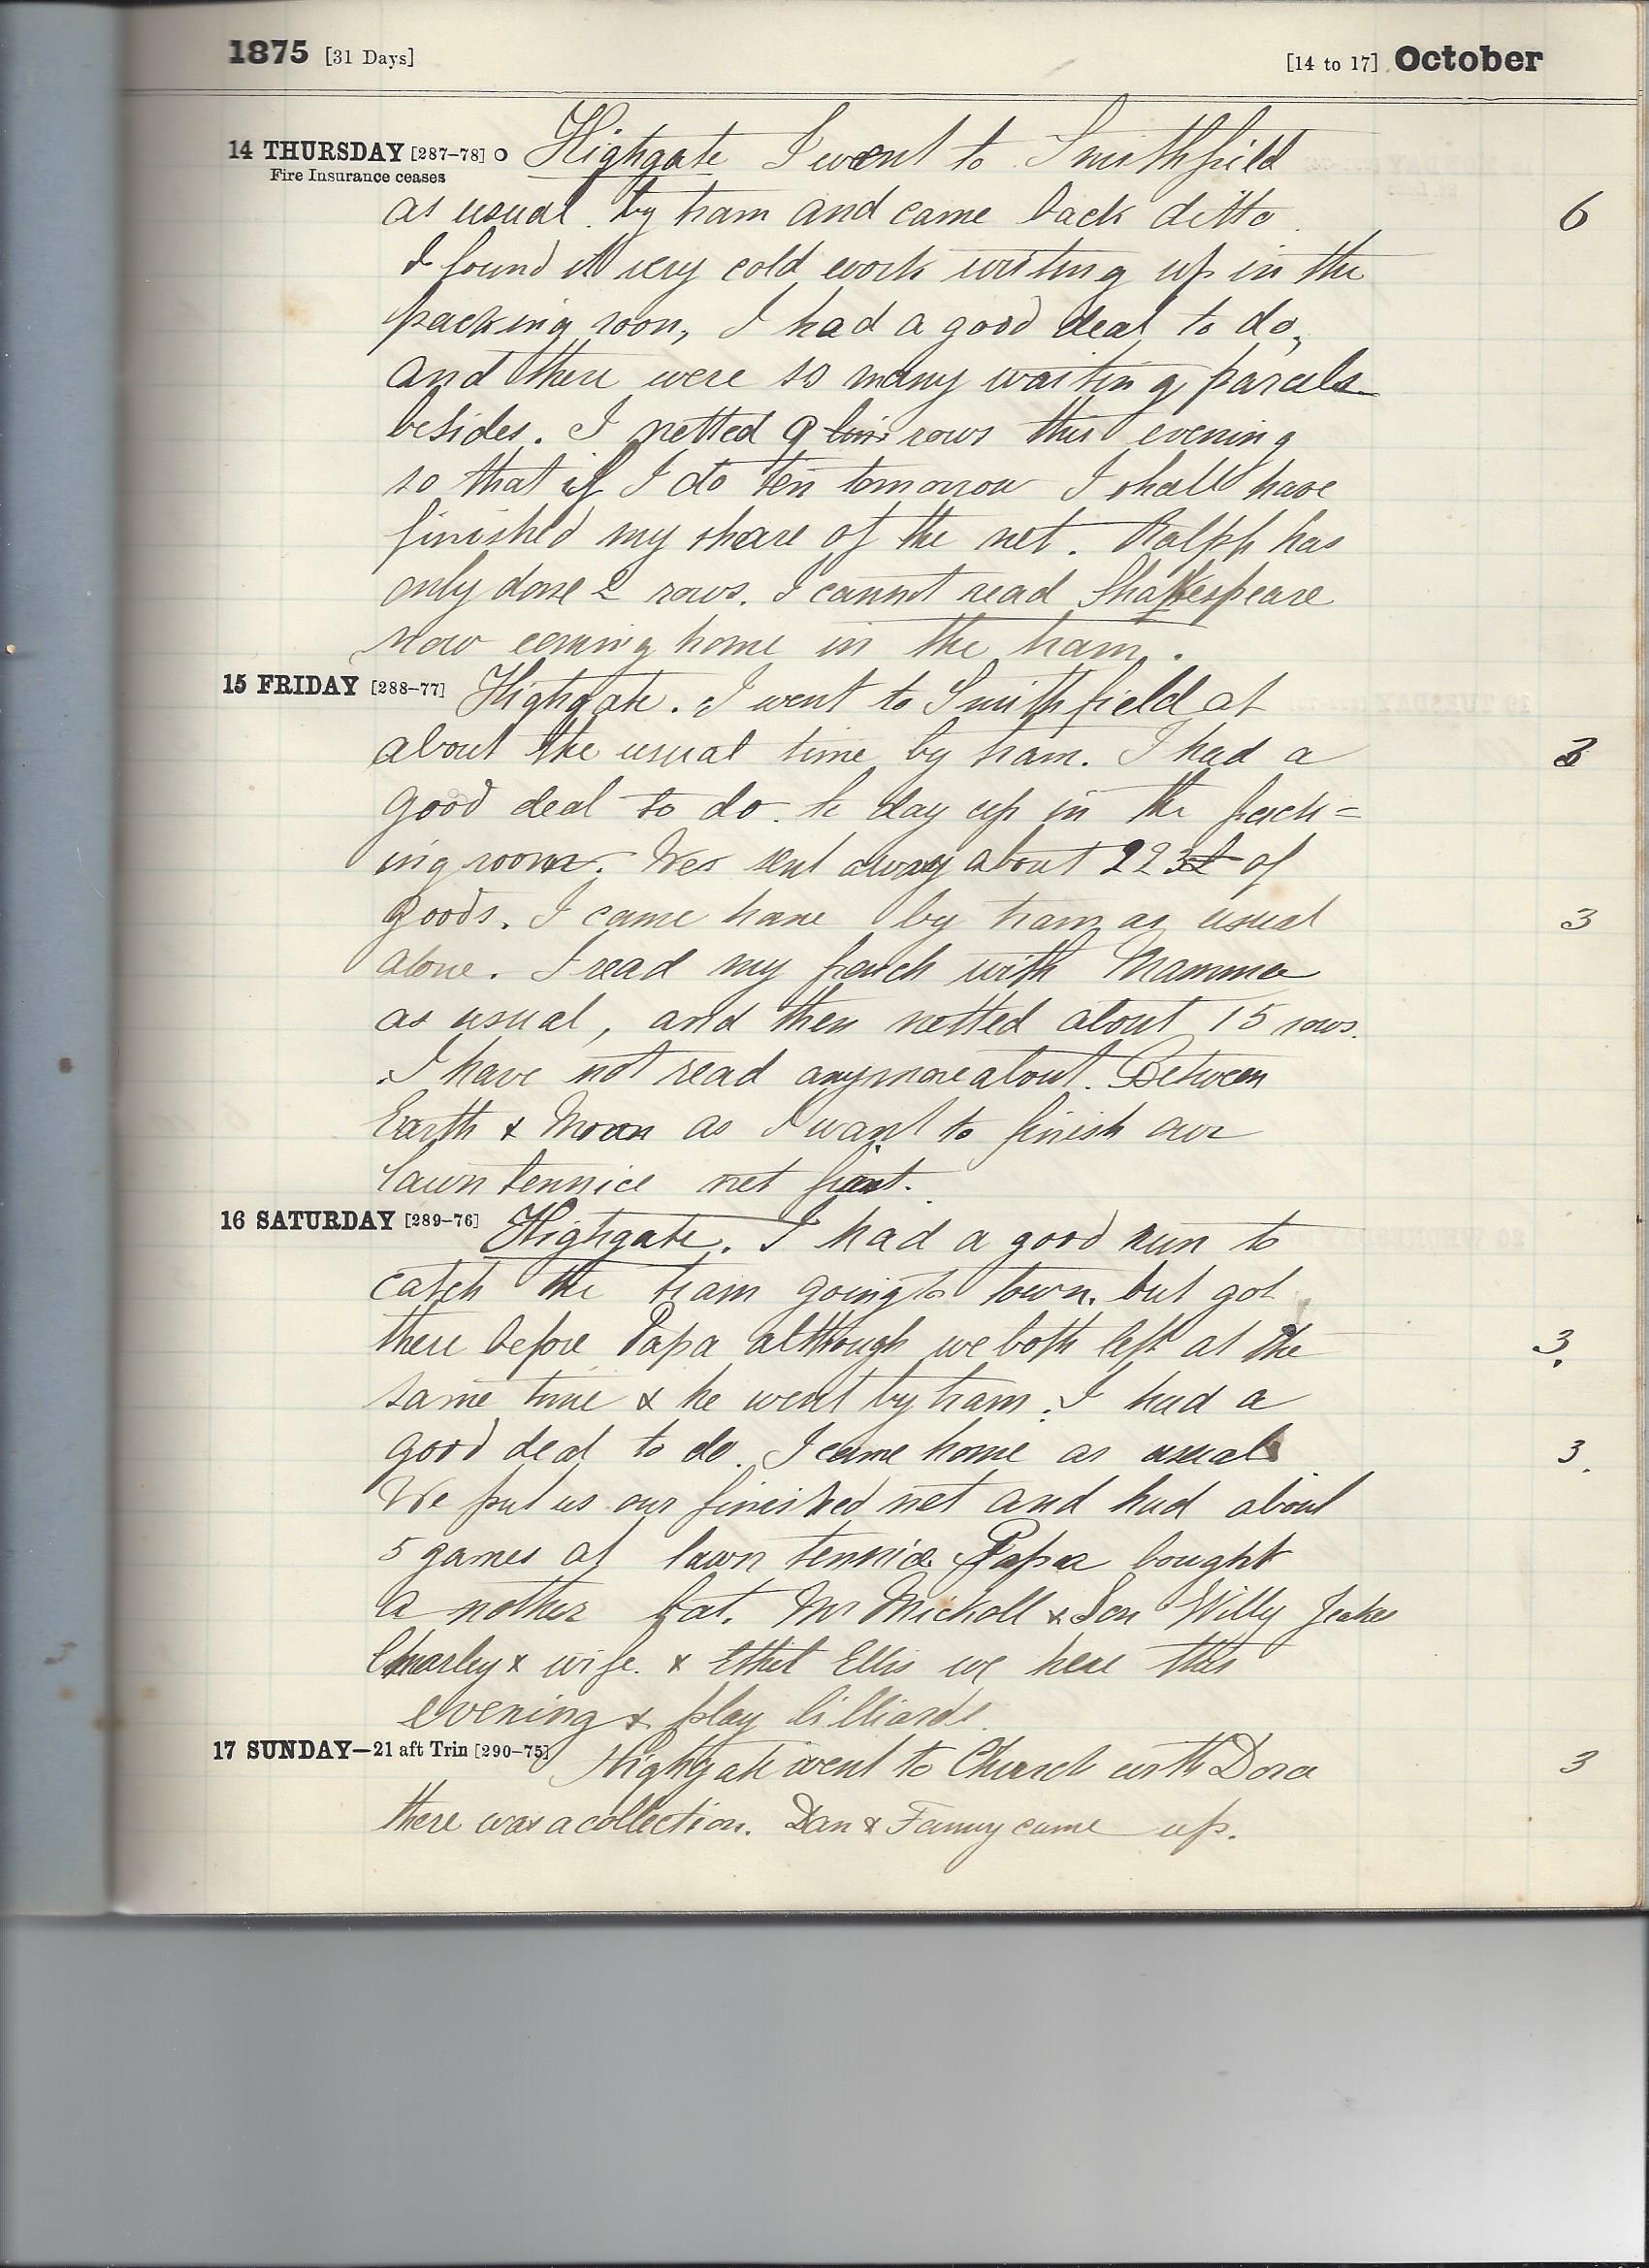 1875 [31 Days] [14 to 17] October
14 THURSDAY [287-78] O Highgate I went to Smithfield
Fire Insurance ceases
as usual by tram and came back ditto 6
I found it very cold work writing up in the
packing room, I had a good deal to do,
and there were so many waiting parcels
besides. I netted 9 lines rows this evening
so that if I do ten tomorrow I shall have
finished my share of the net. Ralph has
only done 2 rows. I cannot read Shakespeare
now coming home in the tram.
15 FRIDAY [288-77] Highgate. I went to Smithfield at
about the usual time by tram. I had a 3
good deal to do. to day up in the pack=
ing room. We sent away about 223 of
goods. I came home by tram as usual 3
alone. I read my french with Mamma
as usual, and then netted about 15 rows.
I have not read anymore about. Between
Earth & Moon as I want to finish our
lawn tennice net first.
16 SATURDAY [289-76] Highgate. I had a good run to
catch the tram going to town. but got
there before Papa although we both left at the 3.
same time & he went by tram. I had a
good deal to do. I came home as usual 3.
We put us our finished net and had about
5 games at lawn tennice. Papa bought
a nother bat. Mr Nickoll & Son Willy Jeakes
Charley & wife. & Ethel Ellis we here this
evening & play billiards.
17 SUNDAY—21 aft Trin [290-75] Highgate went to Church with Dora 3
there was a collection. Dan & Fanny came up.